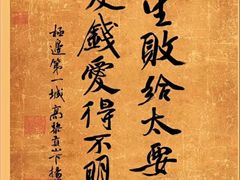 生敗給太要
錢愛得不明
極邊第一城高黎貢山下